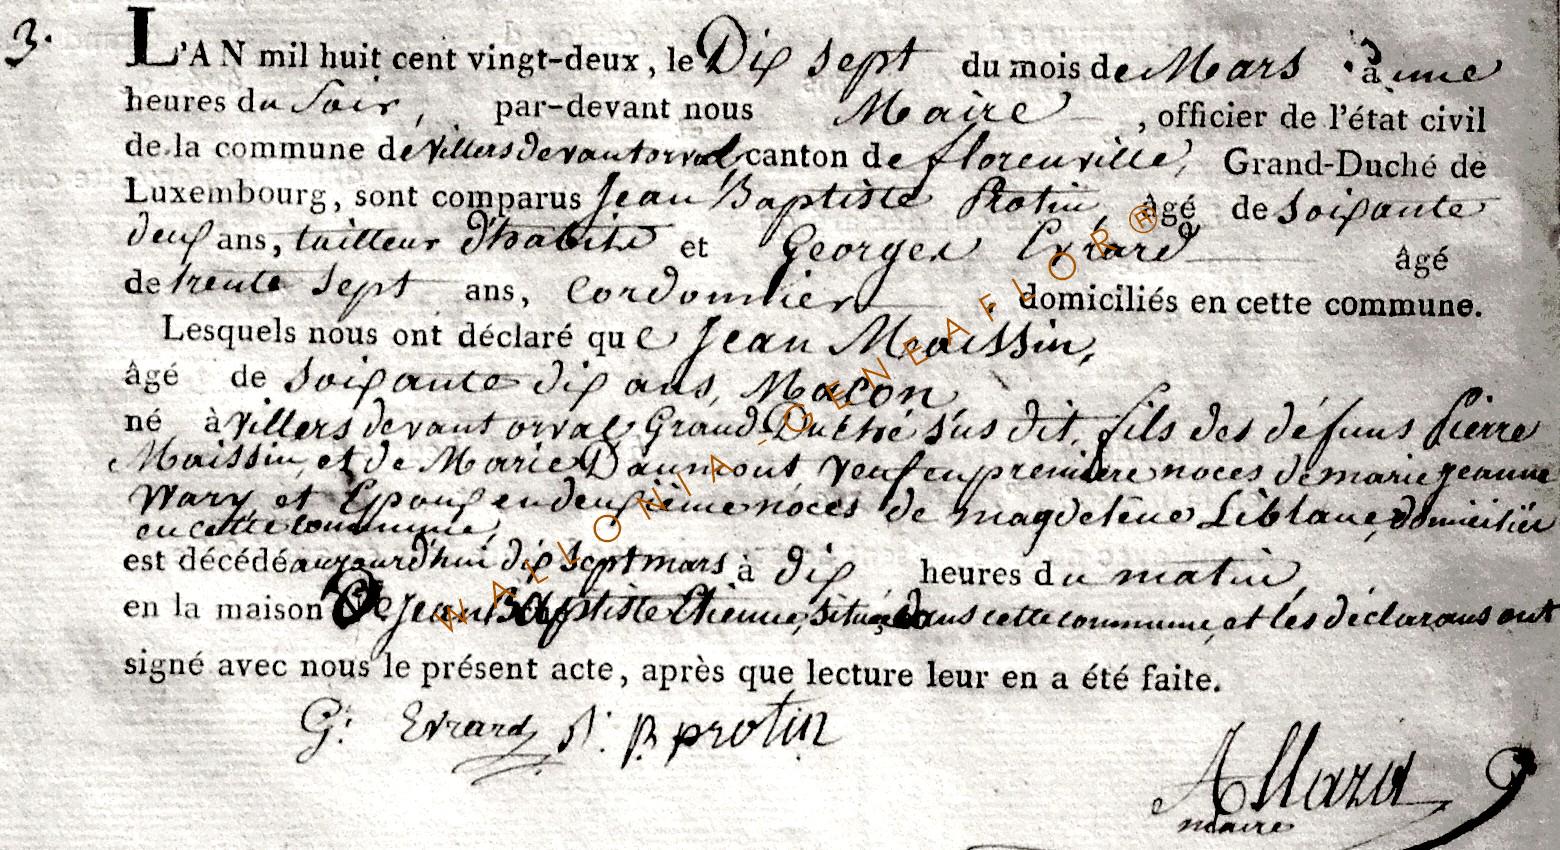 3.
L'AN mil huit cent vingt-deux, le Dix sept du mois de Mars à une
heures du Soir, par-devant nous Maire, officier de l'état civil
de la commune de Villers devant orval canton de florenville, Grand-Duché de
Luxembourg, sont comparus Jean Baptiste Protin, âgé de Soixante
deux ans, tailleur d'habits et Georges Evrard âgé
de trente Sept ans, Cordonnier, domiciliés en cette commune.
Lesquels nous ont déclaré que Jean Maissin,
âgé de Soixante dix ans, Macon,
né à Villers devant orval Grand Duché sus dit, fils des défuns Pierre
Maissin, et de Marie Daumont, veuf en première noces de marie jeanne
Wary et Epoux en deuxième noces de magdeleine Liblanc, domicilier
en cette commune,
est décédé aujourd'hui dix sept mars à dix heures du matin,
en la maison de Jean Baptiste Etienne, située dans cette commune, et les déclarans ont
signé avec nous le présent acte, après que lecture leur en a été faite.
G. Evrard J. B. protin
maire
WALLONIA-GENEAFLOR®